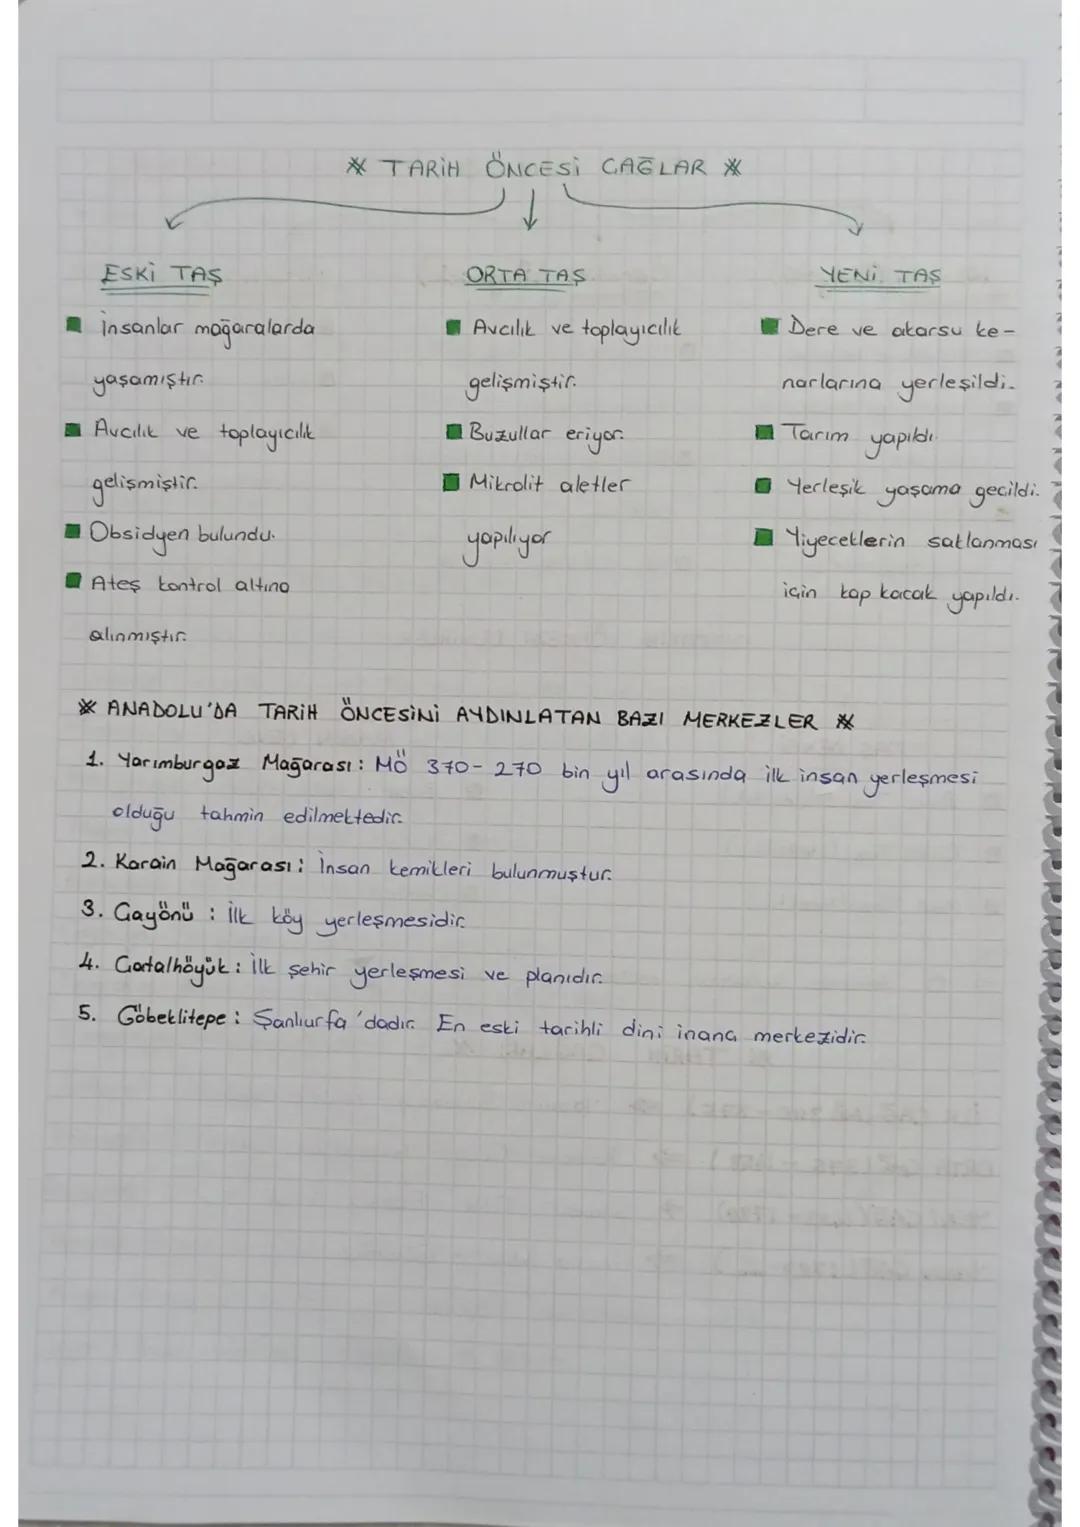 ※ TARİH ÖNCESİ ÇAĞLAR ※
ESKİ TAŞ
İnsanlar mağaralarda
yaşamıştır.
Avcılık ve toplayıcılık
gelişmiştir.
Obsidyen bulundu.
Ateş kontrol altına
alınmıştır.
ORTA TAŞ
Avcılık ve toplayıcılık
gelişmiştir.
Buzullar eriyor.
Mikrolit aletler
yapılıyor
YENİ TAŞ
Dere ve akarsu ke-
narlarına yerleşildi.
Tarım yapıldı.
Yerleşik yaşama geçildi.
Yiyeceklerin saklanması
için kap kacak yapıldı.
※ ANADOLU'DA TARİH ÖNCESİNİ AYDINLATAN BAZI MERKEZLER ※
1. Yarımburgaz Mağarası: MÖ 370-270 bin yıl arasında ilk insan yerleşmesi
olduğu tahmin edilmektedir.
2. Karain Mağarası: İnsan kemikleri bulunmuştur.
3. Çayönü: İlk köy yerleşmesidir.
4. Çatalhöyük: İlk şehir yerleşmesi ve planıdır.
5. Göbeklitepe: Şanlıurfa'dadır. En eski tarihli dini inanç merkezidir.